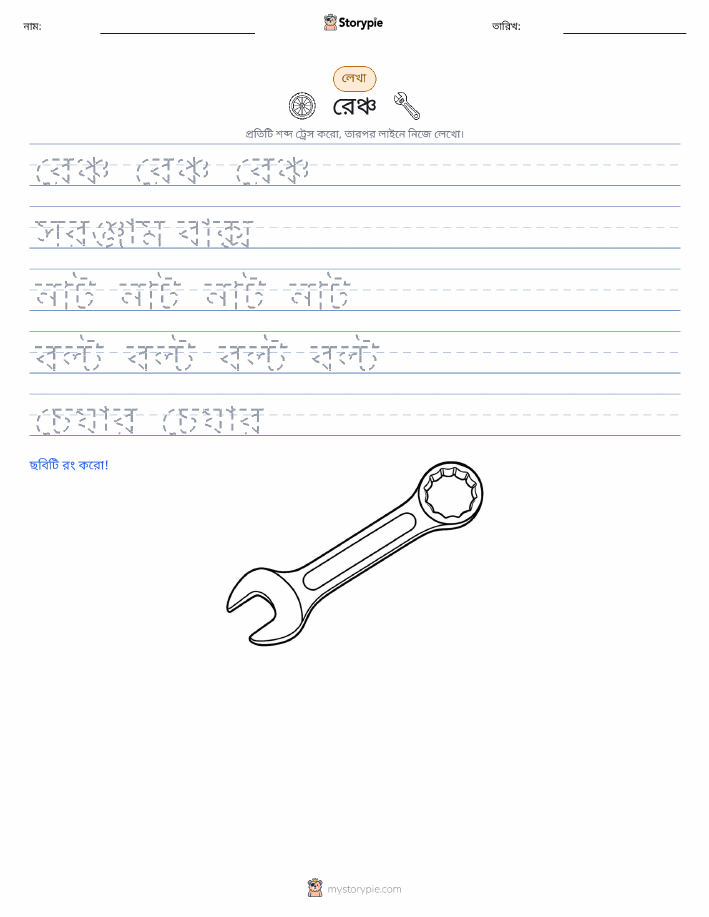 নাম:
Storypie
তারিখ:
লেখা
রেঞ্চ
প্রতিটি শব্দ ট্রেস করো, তারপর লাইনে নিজে লেখো।
রেঞ্চ রেঞ্চ রেঞ্চ
সরঞ্জাম বাক্স
নাট নাট নাট নাট
বল্ট বল্ট বল্ট বল্ট
চেঘার চেঘার
ছবিটি রং করো!
mystorypie.com